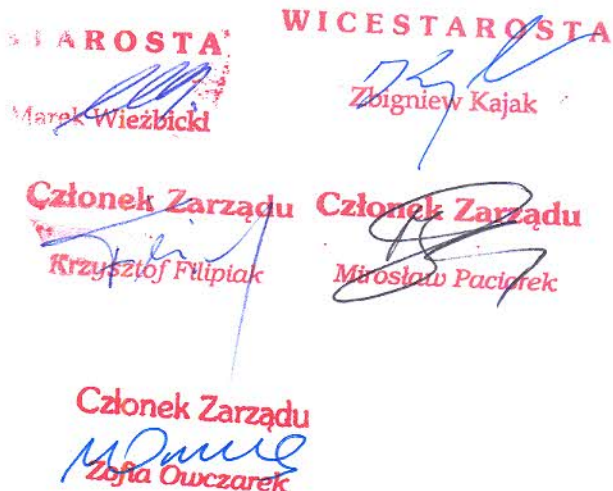 STAROSTA
Marek Wieżbicki
WICESTAROSTA
Zbigniew Kajak
Członek Zarządu
Krzysztof Filipiak
Członek Zarządu
Mirosław Paciorek
Członek Zarządu
Zofia Owczarek